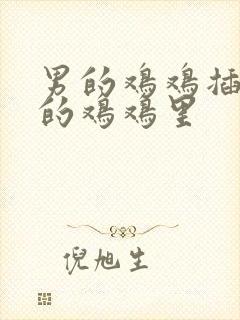 男的鸡鸡插
的鸡鸡里
倪旭生